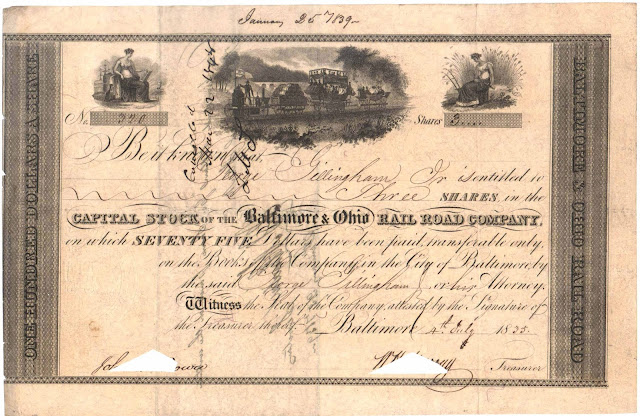 January 25 1839
No. 320
Shares 3
Be it known, that
George Gillingham Jr is entitled to
Three SHARES in the
CAPITAL STOCK OF THE Baltimore & Ohio RAIL ROAD COMPANY,
on which SEVENTY FIVE Dollars have been paid, transferable only
on the Books of the Company, in the City of Baltimore, by
the said George Gillingham or his Attorney.
Witness the Seal of the Company, attested by the Signature of
the Treasurer thereof. Baltimore 4th July 1835
Treasurer
ONE HUNDRED DOLLARS A SHARE
BALTIMORE & OHIO RAIL ROAD